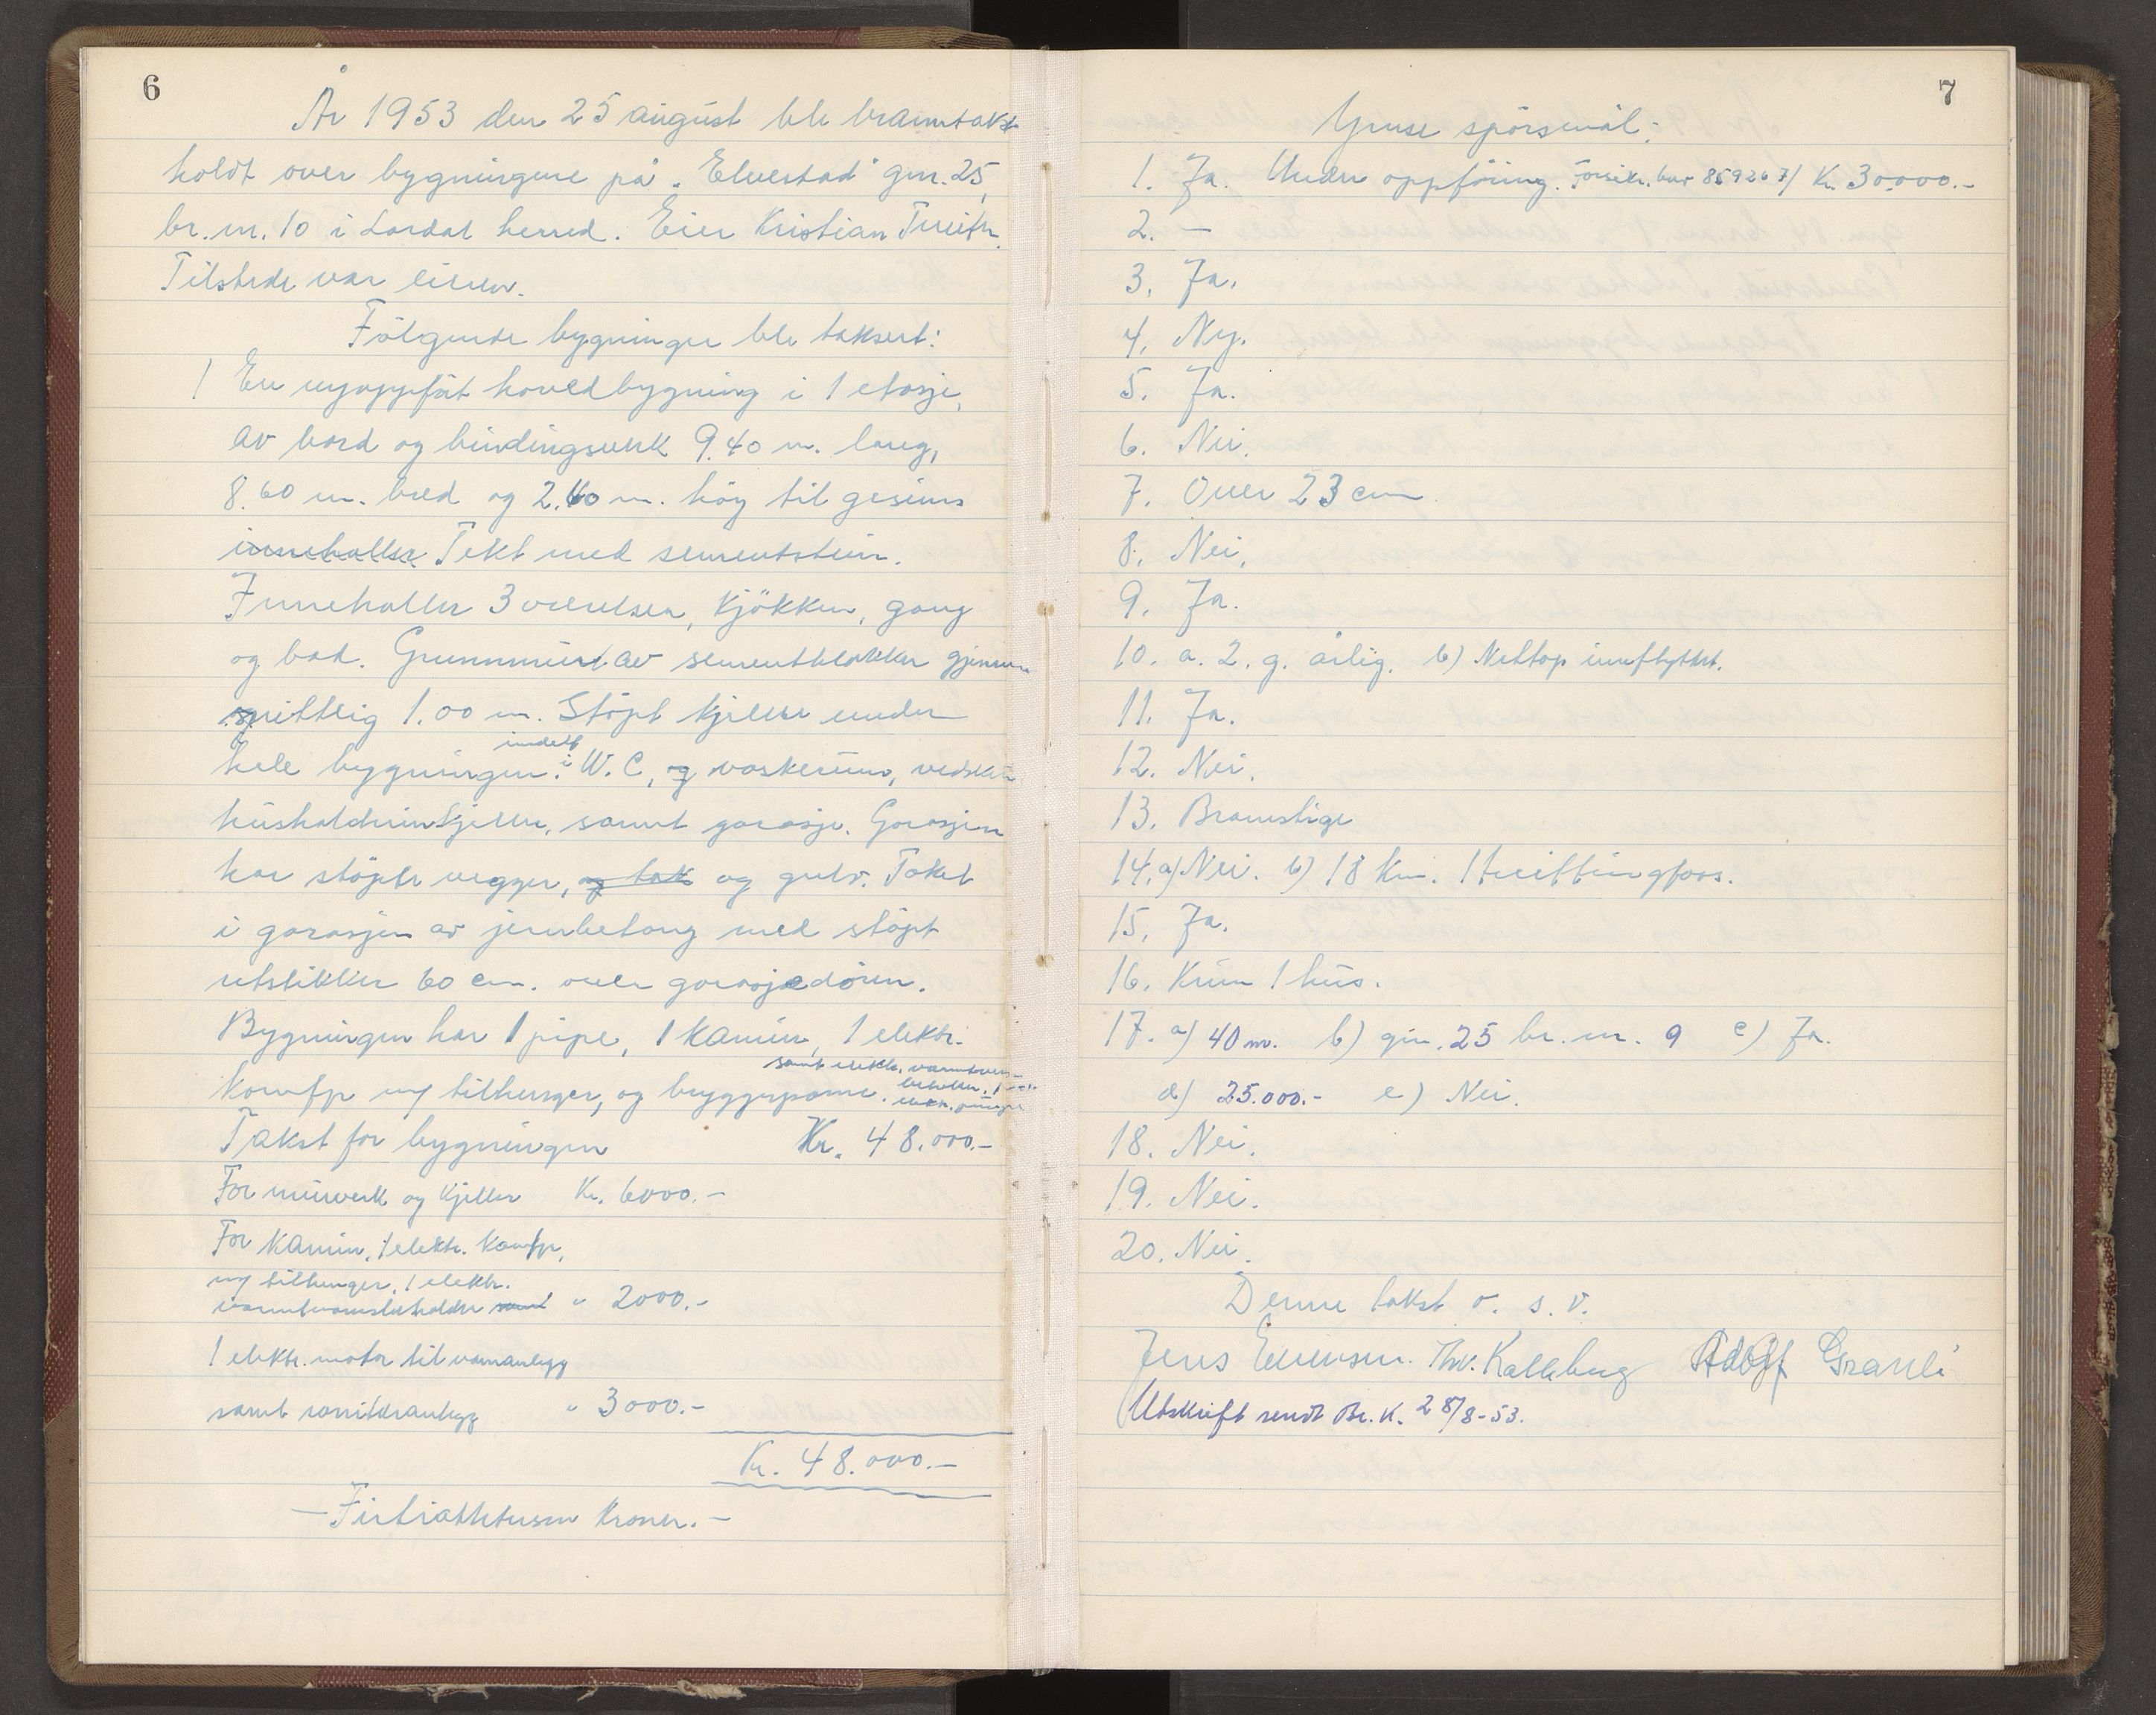 6
År 1953 den 25 august ble branntakst
holdt over bygningene på "Elvestad" gnr. 25,
br. nr. 10 i Lardal herred. Eier Kristian
Tilstede var eieren.
Følgende bygninger ble taksert:
1 En nyoppført hovedbygning i 1 etasje,
av bord og bindingsverk 9.40 m. lang,
8.60 m. bred og 2.60 m. høy til gesims
inneholler Tekt med sementstein.
Inneholler 3 værelser, kjøkken, gang
og bad. Grunnmur av sementblokker gjennom
snittlig 1.00 m. Støpt kjeller under
hele bygningen. inndelt i W.C, og vaskerum, vedskur
husholdninskjeller, samt garasje. Garasjen
har støpte vegger, og tak og gulv. Taket
i garasjen av jernbetong med støpt
utstikker 60 cm. over garasjedøren.
Bygningen har 1 pipe, 1 kamin, 1 elektr.
samt elektr. varmtvanns-
beholder, 1
komfyr m/ tilhenger, og bryggepanne.
Takst for bygningen Kr. 48.000.-
For murverk og kjeller Kr. 6000.-
For kamin, 1 elektr. komfyr,
m/ tilhenger, 1 elektr.
varmtvannsbeholder samt " 2000.-
1 elektr. motor til vannanlegg
samt sanitæranlegg " 3000.-
Kr. 48.000.-
- Førtiåttetusen kroner. -
7
Ymse spørsmål:
1. Ja. Under oppføring. Forsikr. bev 859267/ Kr. 30.000.-
2. -
3. Ja.
4. Ny.
5. Ja.
6. Nei.
7. Over 23 cm.
8. Nei.
9. Ja.
10. a. 2. g. årlig. b) Nettop innflyttet.
11. Ja.
12. Nei.
13. Brannstige
14. a) Nei. b) 18 km. Hvittingfoss.
15. Ja.
16. Kun 1 hus.
17. a) 40 m. b) gnr. 25 br. nr. 9 c) Ja.
d) 25.000.- e) Nei.
18. Nei.
19. Nei.
20. Nei.
Denne takst o. s. v.
Jens Evensen. Thv. Kalleberg Adolf Granli
Utskrift sendt Br. K. 28/8-53.